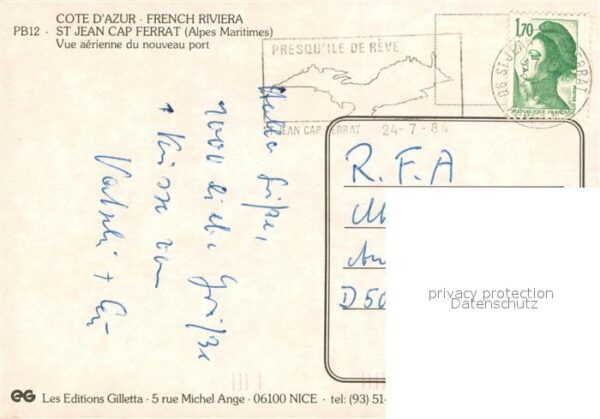 COTE D'AZUR · FRENCH RIVIERA
PB12 · ST JEAN CAP FERRAT (Alpes Maritimes)
Vue aérienne du nouveau port
PRESQU'ILE DE RÊVE
ST JEAN CAP FERRAT 24-7-84
1,70
REPUBLIQUE FRANÇAISE
06 ST JEAN CAP FERRAT
Hallo
1000 liebe Grüße
+ Küsse von
R.F.A
D 50
privacy protection
Datenschutz
Les Editions Gilletta - 5 rue Michel Ange - 06100 NICE - tel: (93) 51-